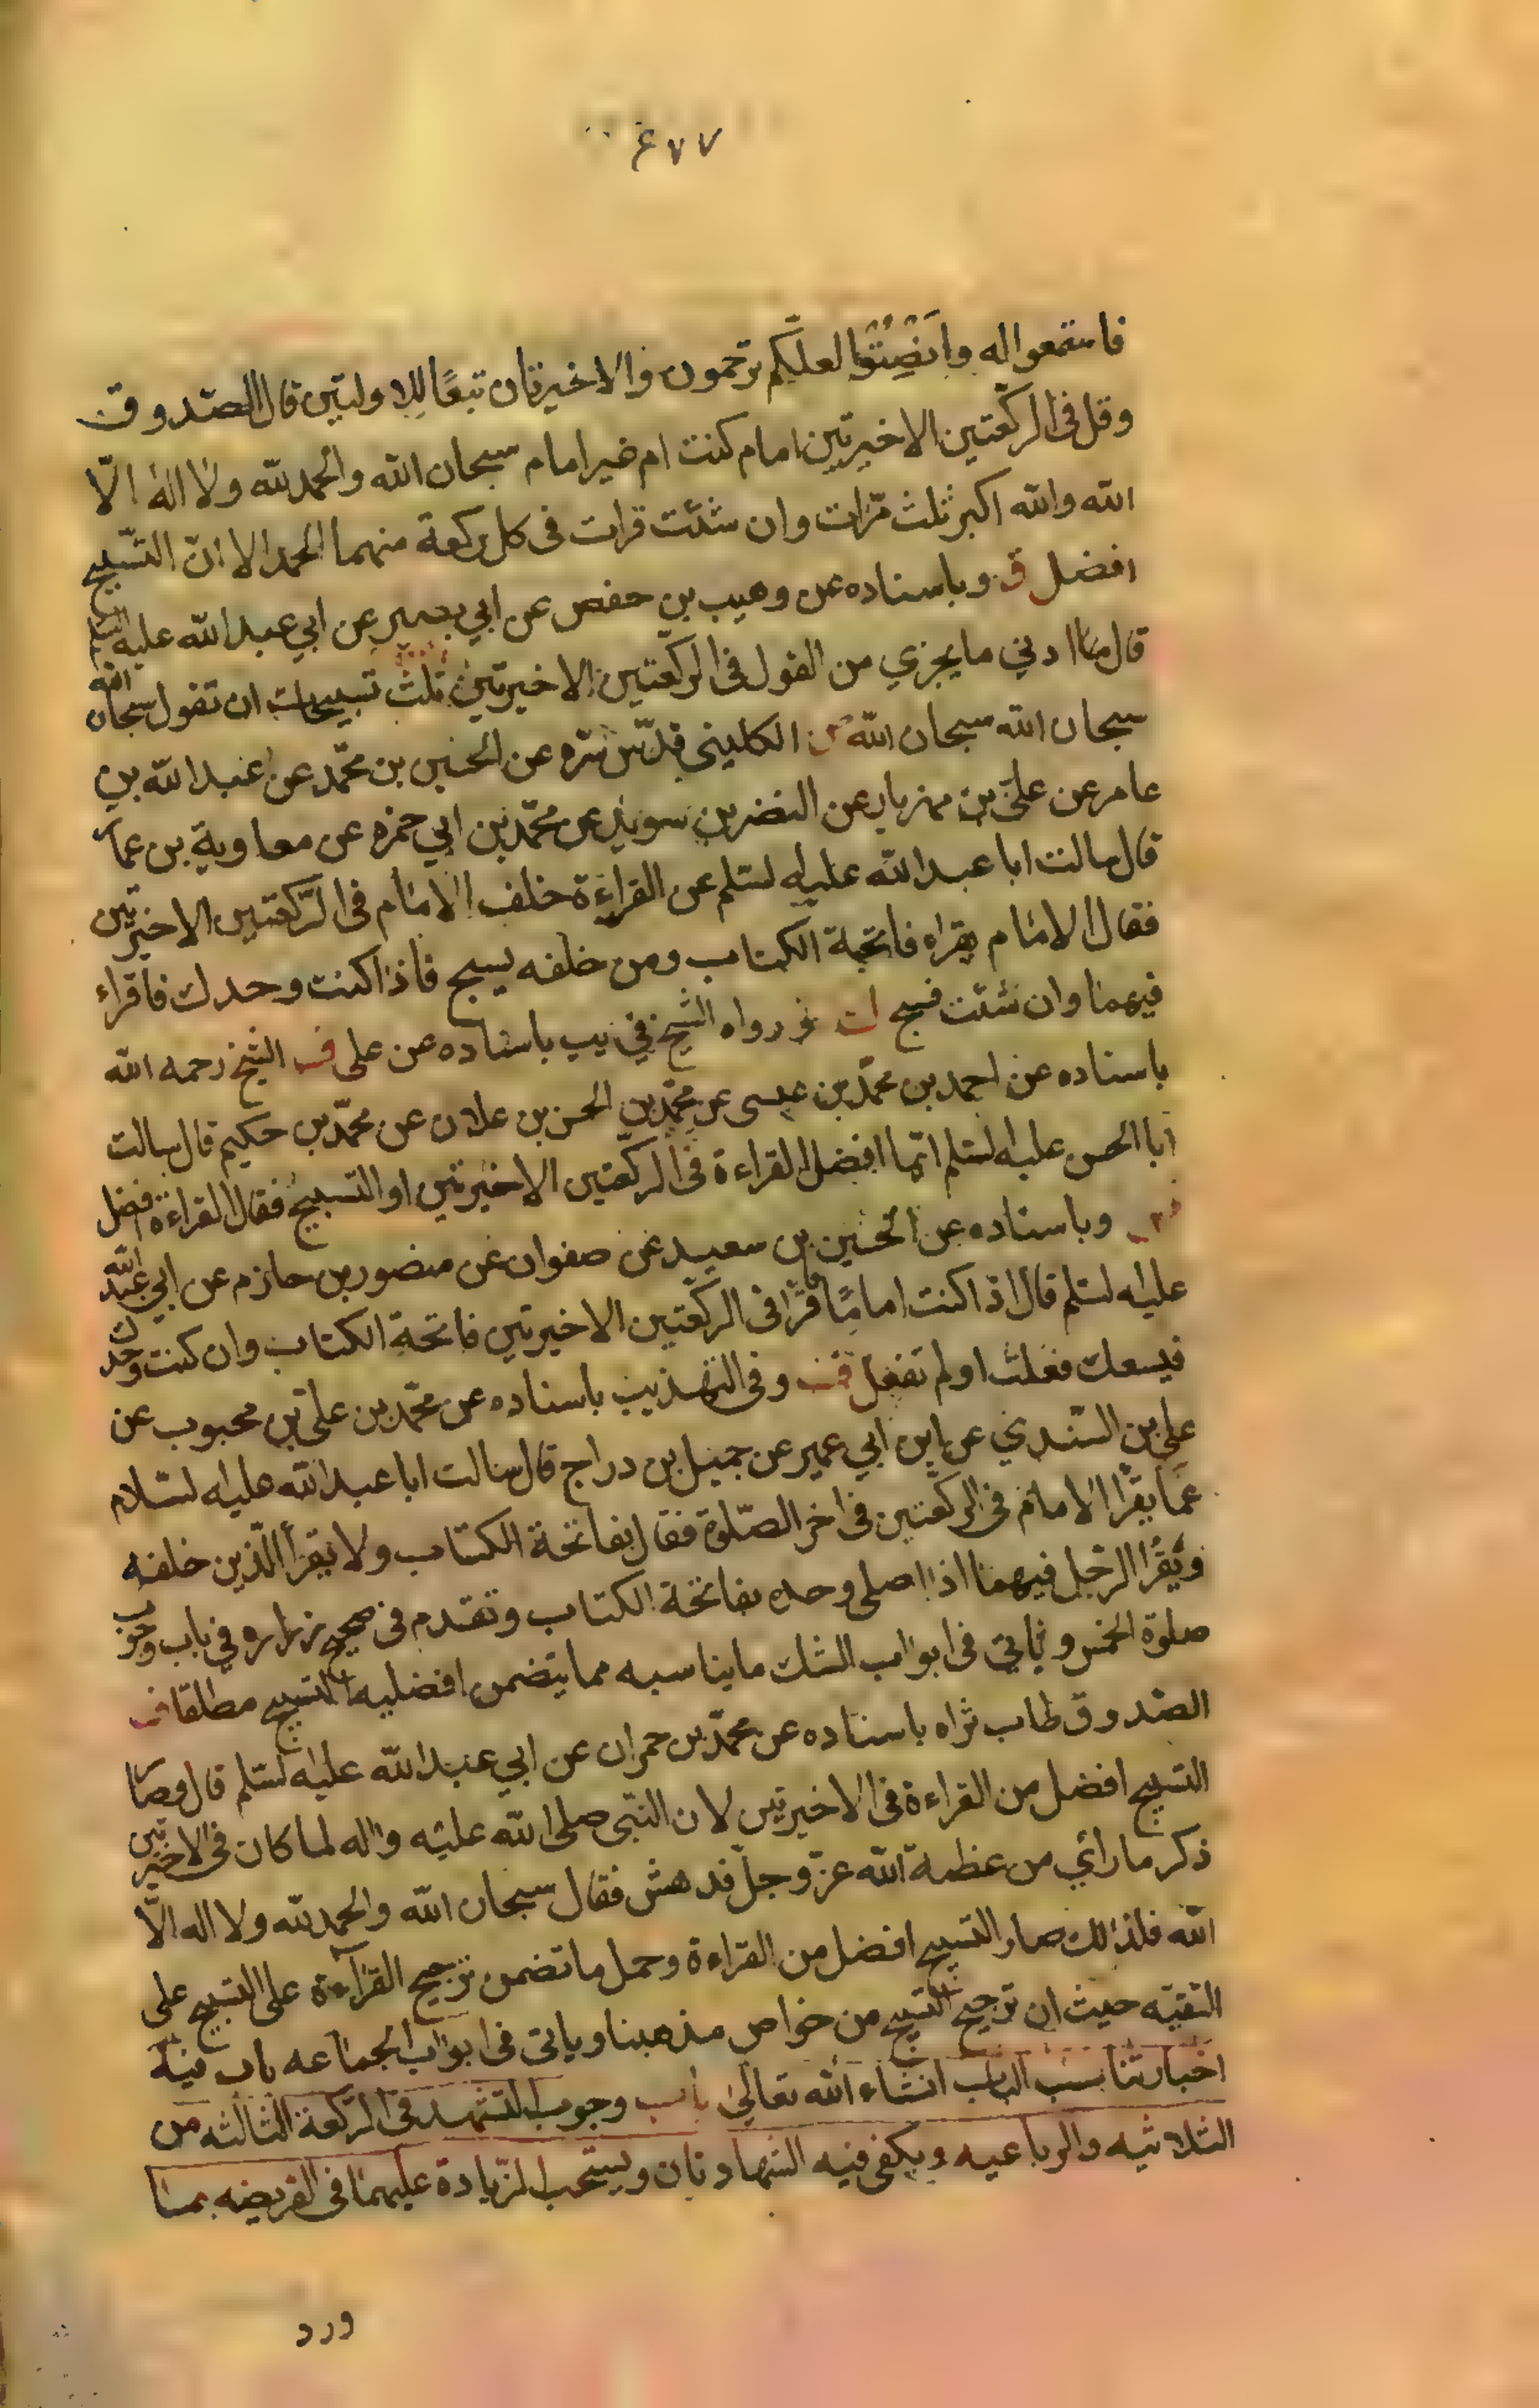 ٤٧٧
فاستمعوا له وَاَنْصِتُوا لعلّكم ترحمون والاخيرتان تبعًا للاولتين قال الصّدوق
وقل فى الركعتين الاخيرتين امام كنت ام غير امام سبحان الله والحمد لله ولا اله الّا
الله والله اكبر ثلث مرّات وان شئت قرات فى كل ركعة منهما الحمد الا انّ التسّبيح
افضل ق وباسناده عن وهيب بن حفص عن ابي بصير عن ابي عبد الله عليه السلم
قال ادنى ما يجزي من القول فى الركعتين الاخيرتين ثلث تسبيحات ان تقول سبحان الله
سبحان الله سبحان الله الكلينى قدّس سّره عن الحسين بن محمّد عن عبد الله بن
عامر عن علىّ بن مهزيار عن النضر بن سويد عن محمّد بن ابي حمزه عن معاوية بن عمار
قال سالت ابا عبد الله عليه لسّلم عن القراءة خلف الامام فى الرّكعتين الاخيرتين
فقال الامام يقراء فاتحة الكتاب ومن خلفه يسبح فاذا كنت وحدك فاقراء
فيهما وان شئت فسبح رواه الشيخ في يب باسناده عن على الشيخ رحمه الله
باسناده عن احمد بن محمّد بن عيسى عن محمّد بن الحسن بن علان عن محمّد بن حكيم قال سالت
ابا الحسن عليه لسّلم ايّما افضل القراءة فى الركعتين الاخيرتين او التسبيح فقال القراءة افضل
وباسناده عن الحسين بن سعيد عن صفوان عن منصور بن حازم عن ابي عبد الله
عليه لسّلم قال اذا كنت امامًا فاقرا فى الركعتين الاخيرتين فاتحة الكتاب وان كنت وحدك
فيسعك فعلت او لم تفعل وفى التهذيب باسناده عن محمّد بن على بن محبوب عن
علي بن السّندي عن ابن ابي عمير عن جميل بن دراج قال سالت ابا عبد الله عليه لسّلام
عمّا يقرا الامام فى الركعتين فى اخر الصّلوة فقال بفاتحة الكتاب ولا يقرأ الّذين خلفه
ويَقُرا الرّجل فيهما اذا صلى وحده بفاتحة الكتاب وتقدم فى صحيح زراره في باب وجوب
صلوة الخمس وياتي فى ابواب الشك ما يناسبه مما يتضمن افضليه التسبيح مطلقا
الصّدوق طاب ثراه باسناده عن محمّد بن حمران عن ابي عبد الله عليه لسّلم قال وصار
التسبيح افضل من القراءة فى الاخيرتين لان النّبى صلى الله عليه واله لما كان فى الاخيرتين
ذكر ما رأي من عظمة الله عزّ وجلّ فدهش فقال سبحان الله والحمد لله ولا اله الّا
الله فلذالك صار التسبيح افضل من القراءة وحمل ما تضمن ترجيح القرآءة على التسبيح على
التقيّه حيث ان ترجيح التسبيح من خواص مذهبنا وياتى فى ابواب الجماعه باب فيه
اخبار تناسب الباب انشاء الله تعالى باب وجوب التشهد فى الركعة الثالثه من
الثلاثيه والرباعيه ويكفى فيه الشهادتان ويستحب الزّيادة عليهما فى الفريضه بما
ورد